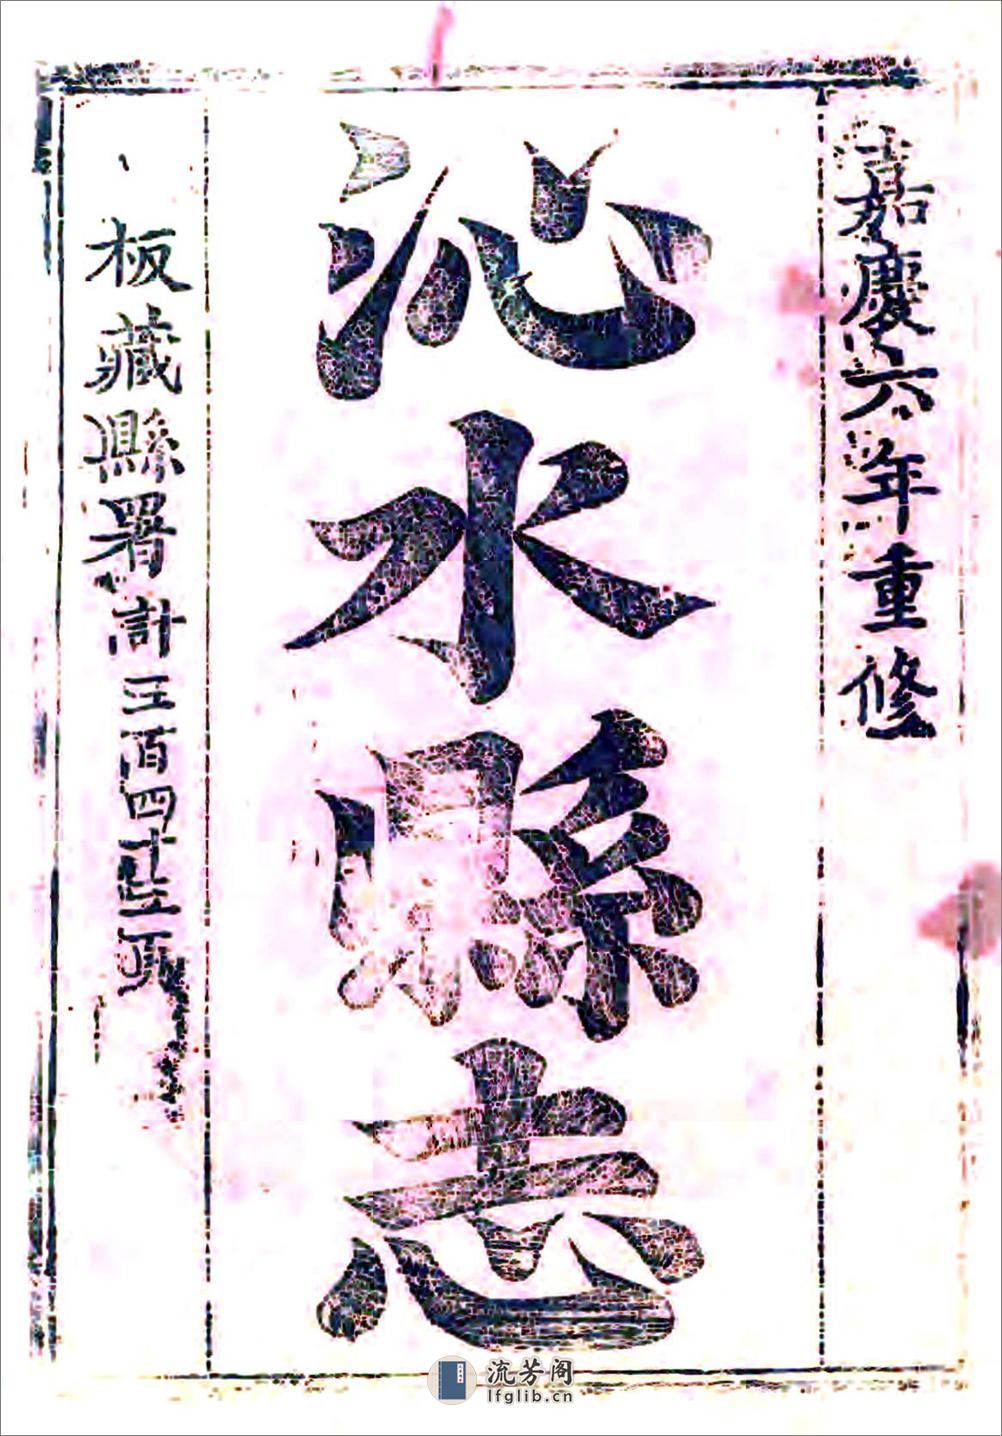 嘉慶六年重修
沁水縣志
板藏縣署計三百四十五頁
流芳阁
lfglib.cn